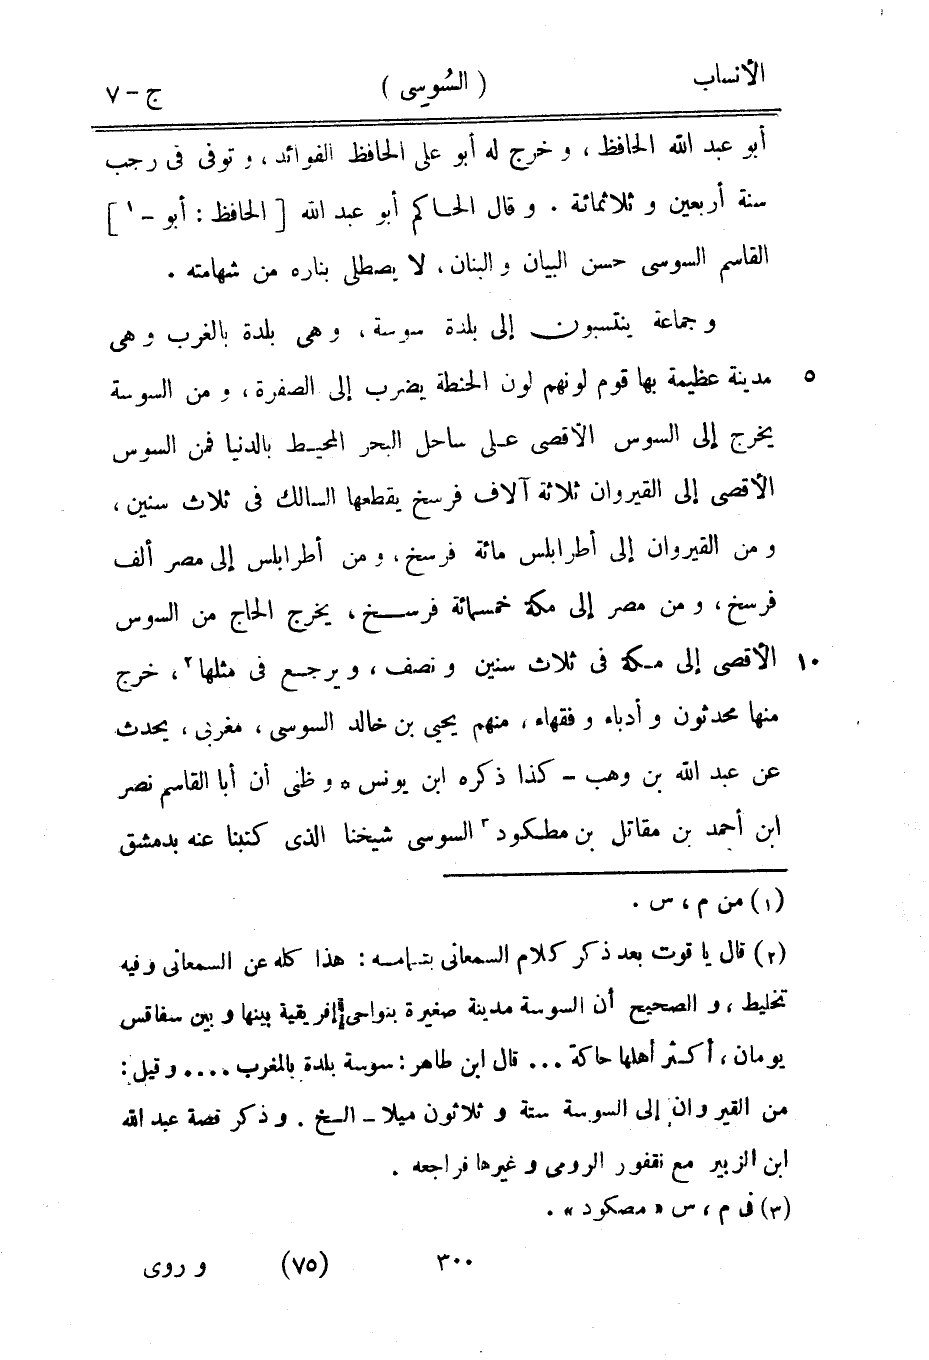 الأنساب ( السُوسى ) ج - ٧
أبو عبد الله الحافظ ، و خرج له أبو على الحافظ الفوائد ، و توفى فى رجب
سنة أربعين و ثلاثمائة . و قال الحاكم أبو عبد الله [ الحافظ : أبو - ١ ]
القاسم السوسى حسن البيان و البنان ، لا يصطلى بناره من شهامته .
و جماعة ينتسبون إلى بلدة سوسة ، و هى بلدة بالغرب و هى
٥ مدينة عظيمة بها قوم لونهم لون الحنطة يضرب إلى الصفرة ، و من السوسة
يخرج إلى السوس الأقصى على ساحل البحر المحيط بالدنيا فمن السوس
الأقصى إلى القيروان ثلاثة آلاف فرسخ يقطعها السالك فى ثلاث سنين ،
و من القيروان إلى أطرابلس مائة فرسخ ، و من أطرابلس إلى مصر ألف
فرسخ ، و من مصر إلى مكة خمسمائة فرسخ ، يخرج الحاج من السوس
١٠ الأقصى إلى مكة فى ثلاث سنين و نصف ، و يرجع فى مثلها ٢ ، خرج
منها محدثون و أدباء و فقهاء ، منهم يحيى بن خالد السوسى ، مغربى ، يحدث
عن عبد الله بن وهب - كذا ذكره ابن يونس * و ظنى أن أبا القاسم نصر
ابن أحمد بن مقاتل بن مطكود ٣ السوسى شيخنا الذى كتبنا عنه بدمشق
(١) من م ، س .
(٢) قال ياقوت بعد ذكر كلام السمعانى بتمامه : هذا كله عن السمعانى و فيه
تخليط ، و الصحيح أن السوسة مدينة صغيرة بنواحى إفريقية بينها و بين سفاقس
يومان ، أكثر أهلها حاكة ... قال ابن طاهر : سوسة بلدة بالمغرب .... و قيل :
من القيروان إلى السوسة ستة و ثلاثون ميلا - الخ . و ذكر قصة عبد الله
ابن الزبير مع نقفور الرومى و غيرها فراجعه .
(٣) فى م ، س « مصكود » .
٣٠٠ (٧٥) و روى